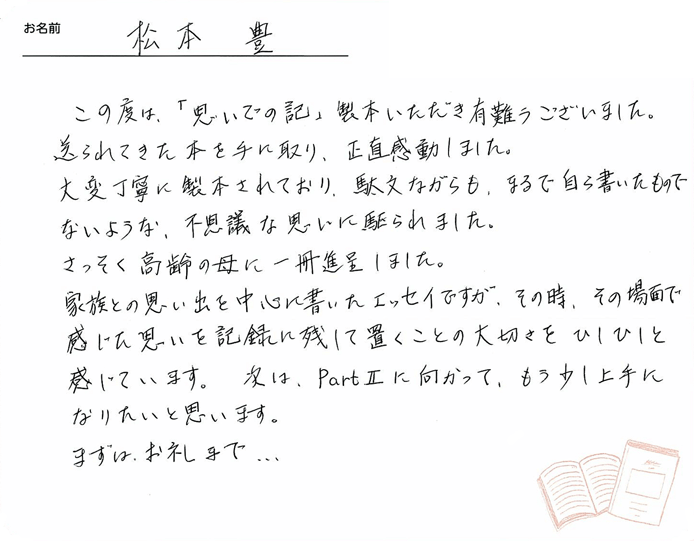 お名前 松本 豊
この度は、「思いでの記」製本いただき有難うございました。
送られてきた本を手に取り、正直感動しました。
大変丁寧に製本されており、駄文ながらも、まるで自ら書いたもので
ないような、不思議な思いに駆られました。
さっそく高齢の母に一冊進呈しました。
家族との思い出を中心に書いたエッセイですが、その時、その場面で
感じた思いを記録に残して置くことの大切さをひしひしと
感じています。 次は、PartⅡに向かって、もう少し上手に
なりたいと思います。
まずは、お礼まで…